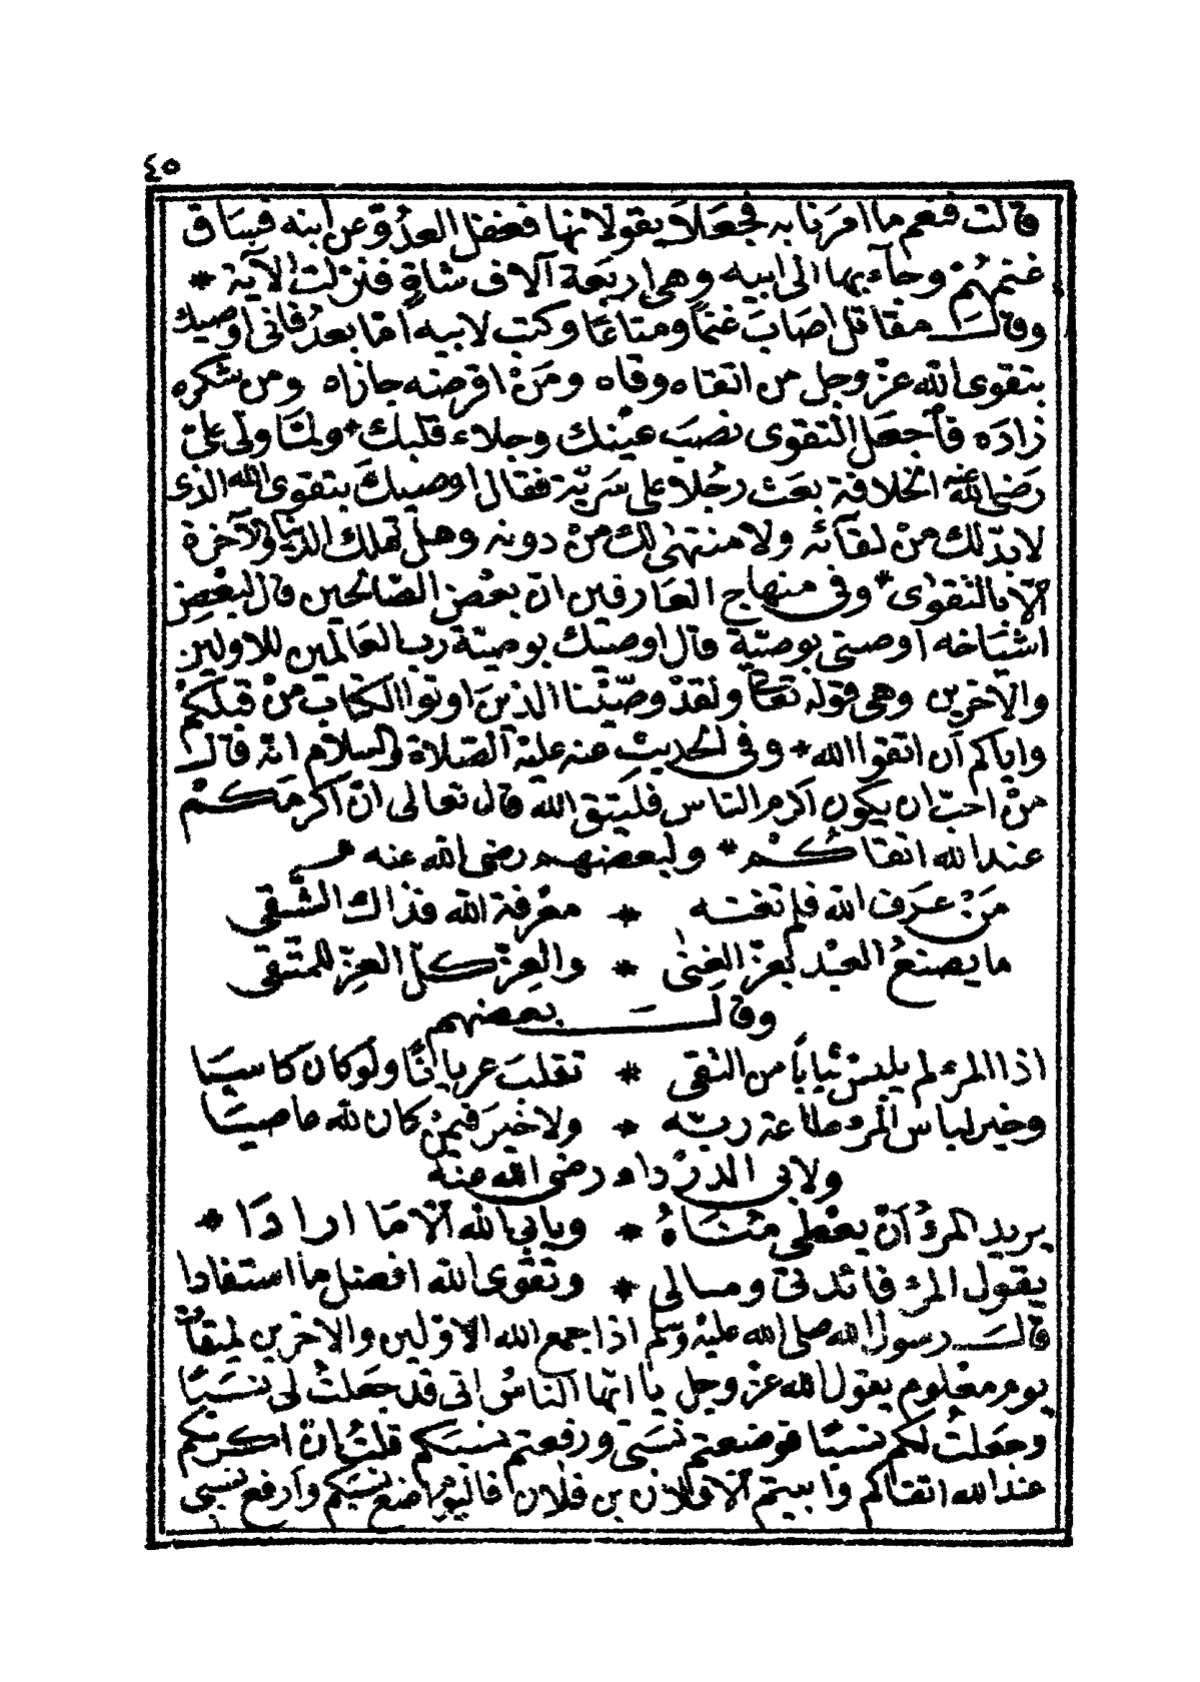 ٤٥
قالت فنعم ما امرنا به فجعلا يقولانها فغفل العدوّ عن ابنه فساق
غنمهُمْ وجآء بها الى ابيه وهى اربَعة آلاف شاةٍ فنزلت الآية *
وقال مقاتل اصَابَ غنمًا ومتاعًا وكتب لابيه امّا بعدُ فانى اوصيك
بتقوى الله عزّ وجل من اتقاه وقاه ومَنْ اقرضه جازاه ومن شكره
زادَه فاجعَل التقوى نصبَ عينك وجلاء قلبك * ولمّا ولى علىّ
رَضى الله عنه الخلافة بعَث رجُلا على سَريّة فقال اوصيكَ بتقوى الله الذى
لابدّ لك من لقآئه ولا منتهٰى لك مِنْ دونه وهو تملك الدنيا والآخرة
الّا بالتقوٰى * وفى منهاج العَارفين انّ بعْض الصّالحين قال لبعْضِ
اشيَاخه اوصنى بوصيّة قال اوصيك بوصيّة رب العَالمين للاولين
والاخرين وهى قوله تعَالى ولقدْ وصّيْنا الذينَ اوتوا الكتابَ منْ قبلكمْ
واياكم أن اتقوا الله * وفى الحديث عنه عليْه الصّلاة والسلام انّه قال
منْ احبّ ان يكون اكرم الناس فليَتق الله قال تعالى انّ اكرمَكمْ
عند الله اتقاكُمْ * ولبعضهم رضى الله عنه
مَنْ عرَفَ الله فلم تغنه * معْرفة الله فذاك الشّقى
ما يصنعُ العبْد بعزّ الغِنٰى * والعِزّ كلّ العِزّ للمتّقى
وقال بعضهم
اذا المرء لم يلبسْ ثيابًا من التقى * تقلبَ عريانًا ولو كان كاسيَا
وخير لباس المرء طاعة ربّه * ولا خيْرَ فيمنْ كان لله عاصيَا
ولابى الدرْداء رضى الله عنه
يريد المرءُ أنْ يعْطى مُنَاهُ * ويابى الله الّا مَا ارادَا *
يقول المرء فائدتى ومالى * وتقوى الله افضل ما استفادا
قال رسول الله صلى الله عليْه وسلّم اذا جمع الله الاوّلين والاخرين لميقات
يوم معْلوم يقول الله عزّ وجل يا ايّها الناسُ انى قد جعَلتُ لى نسَبًا
وجَعلتُ لكم نسبًا فوضعتم نسَبى ورفعتم نسبَكم قلتُ انّ اكرمكم
عند الله اتقاكم وابيتم الا فلان بن فلان فاليوم اضع نسَبكم وارفع نسبى